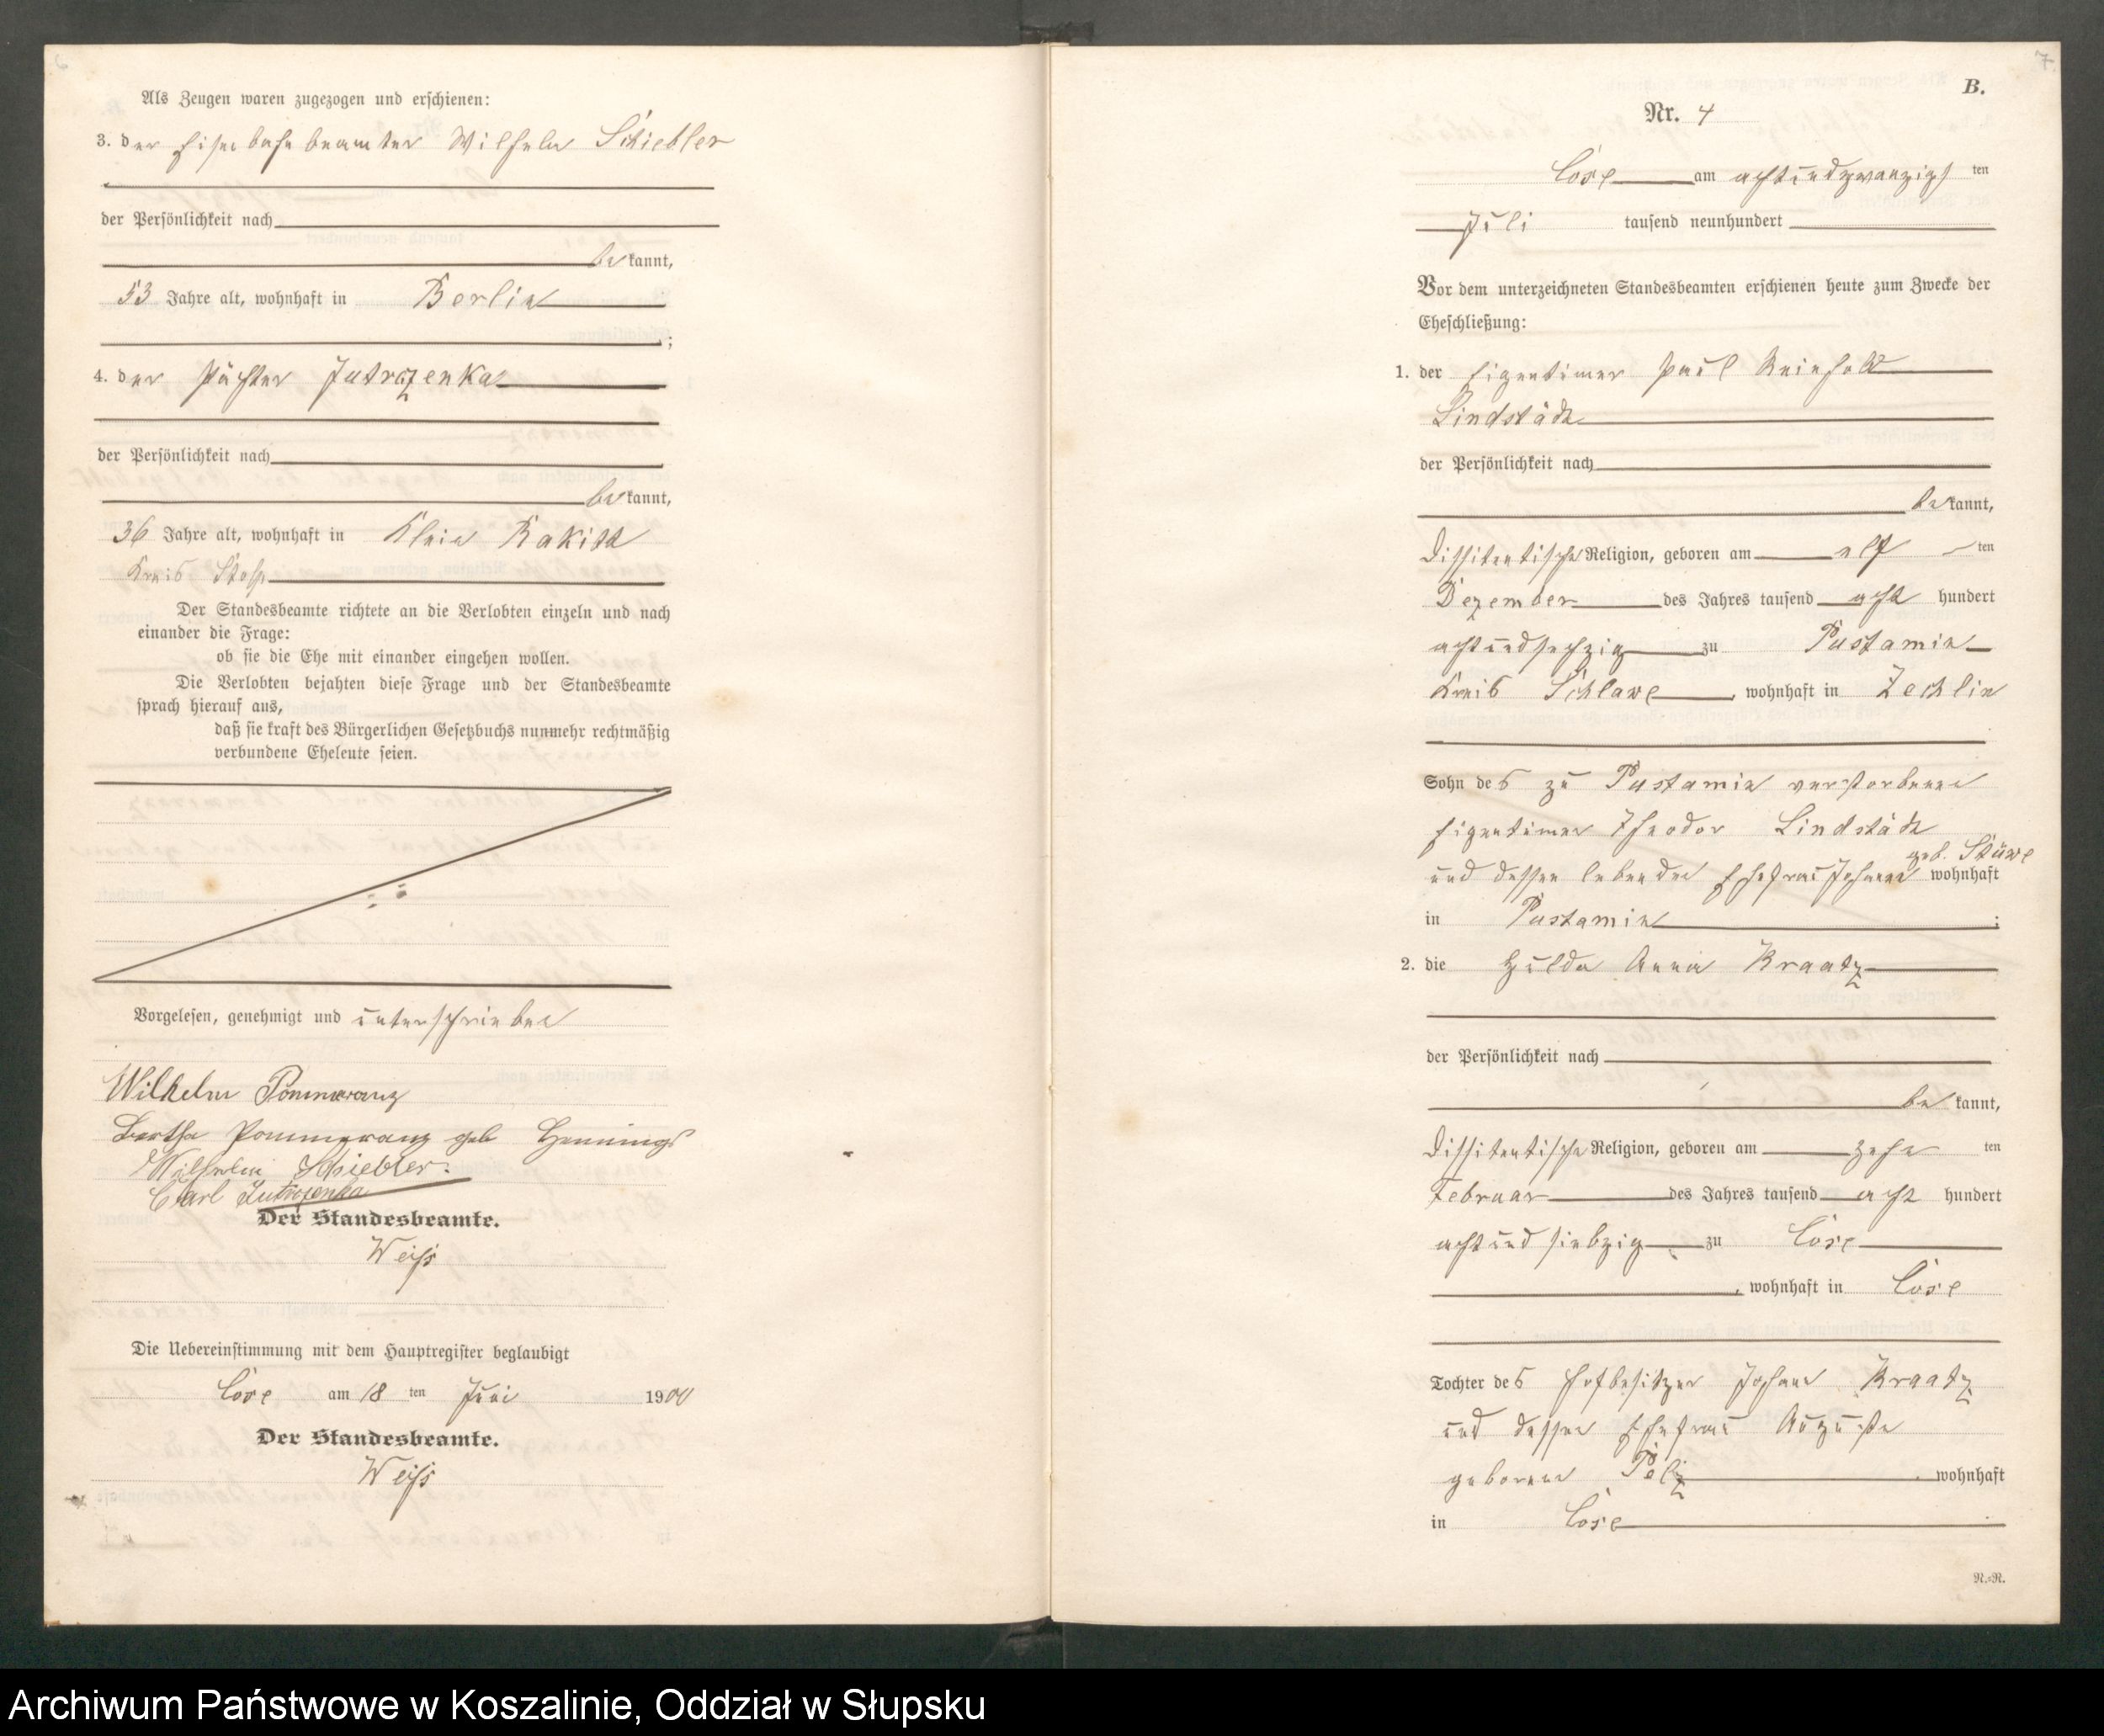 Als Zeugen waren zugezogen und erschienen:
3. der Eisenbahnbeamter Wilhelm Schiebler
der Persönlichkeit nach
bekannt,
53 Jahre alt, wohnhaft in Berlin
;
4. der Pächter Jutrzenka
der Persönlichkeit nach
bekannt,
36 Jahre alt, wohnhaft in Klein Rakitt
Kreis Stolp
Der Standesbeamte richtete an die Verlobten einzeln und nach
einander die Frage:
ob sie die Ehe mit einander eingehen wollen.
Die Verlobten bejahten diese Frage und der Standesbeamte
sprach hierauf aus,
daß sie kraft des Bürgerlichen Gesetzbuchs nunmehr rechtmäßig
verbundene Eheleute seien.
Vorgelesen, genehmigt und unterschrieben
Wilhelm Pommeranz
Bertha Pommeranz geb Hennings
Wilhelm Schiebler.
Carl Jutrzenka
Der Standesbeamte.
Weiß
Die Uebereinstimmung mit dem Hauptregister beglaubigt
Lose am 18 ten Juni 1900
Der Standesbeamte.
Weiß
7
B.
Nr. 4
Lose am achtundzwanzigs ten
Juli tausend neunhundert
Vor dem unterzeichneten Standesbeamten erschienen heute zum Zwecke der
Eheschließung:
1. der Eigentümer Paul Reinhold
Lindstädt
der Persönlichkeit nach
bekannt,
dissitentische Religion, geboren am elf ten
Dezember des Jahres tausend acht hundert
achtundsechzig zu Pustamin
Kreis Schlawe, wohnhaft in Zechlin
Sohn des zu Pustamin verstorbenen
Eigentümer Theodor Lindstädt
und dessen lebenden Ehefrau Johanne geb. Stüwe wohnhaft
in Pustamin ;
2. die Hulda Anna Kraatz
der Persönlichkeit nach
bekannt,
dissitentische Religion, geboren am zehn ten
Februar des Jahres tausend acht hundert
achtundsiebzig zu Lose
, wohnhaft in Lose
Tochter des Hofbesitzer Johann Kraatz
und dessen Ehefrau Auguste
geborene Pelz wohnhaft
in Lose
N.=N.
Archiwum Państwowe w Koszalinie, Oddział w Słupsku